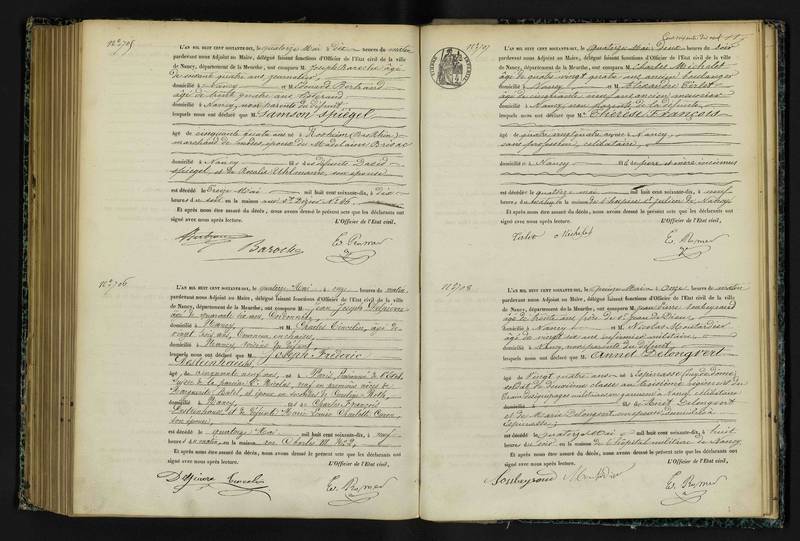 N° 705
L'AN MIL HUIT CENT SOIXANTE-DIX, le quatorze Mai Dix heures du matin
pardevant nous Adjoint au Maire, délégué faisant fonctions d'Officier de l'Etat civil de la ville
de Nancy, département de la Meurthe, ont comparu M. Joseph Baroche âgé
de soixante quatre ans journalier,
domicilié à Nancy et M. Edouard Bertrand
âgé de trente quatre ans
domicilié à Nancy, non parents du défunt
lesquels nous ont déclaré que M. Samson Spiegel
âgé de cinquante quatre ans né à Rosheim (Bas Rhin)
marchand de époux de Madelaine Brisac
domicilié à Nancy fils de défunts David
Spiegel, et de Rosalie Uhlmann, son épouse
est décédé le treize Mai mil huit cent soixante-dix, à dix
heures du soir en la maison rue St Dizier N° 66.
Et après nous être assuré du décès, nous avons dressé le présent acte que les déclarants ont
signé avec nous après lecture. L'Officier de l'Etat civil,
Bertrand
Baroche
E. Romer
N° 706
L'AN MIL HUIT CENT SOIXANTE-DIX, le quatorze Mai à onze heures du matin
pardevant nous Adjoint au Maire, délégué faisant fonctions d'Officier de l'Etat civil de la ville
de Nancy, département de la Meurthe, ont comparu M. Jean Joseph
âgé de ans, Cordonnier,
domicilié à Nancy et M. Charles âgé de
vingt trois ans,
domicilié à Nancy, voisins du défunt
lesquels nous ont déclaré que M. Joseph Frédéric
âgé de cinquante neuf ans, né à Paris,
de la paroisse St Nicolas, veuf en premières noces de
Marguerite et époux en secondes de
domicilié à Nancy fils de Charles François
et de défunte Marie Louise Charlotte
son épouse
est décédé le quatorze Mai mil huit cent soixante-dix, à neuf
heures du matin, en la maison rue Charles III
Et après nous être assuré du décès, nous avons dressé le présent acte que les déclarants ont
signé avec nous après lecture. L'Officier de l'Etat civil,
E. Romer
N° 707
L'AN MIL HUIT CENT SOIXANTE-DIX, le quatorze Mai Deux heures du soir
pardevant nous Adjoint au Maire, délégué faisant fonctions d'Officier de l'Etat civil de la ville
de Nancy, département de la Meurthe, ont comparu M. Charles Michelot
âgé de quatre vingt quatre ans ancien boulanger
domicilié à Nancy et M. Alexandre Tirlot
âgé de cinquante neuf ans ancien
domicilié à Nancy, non parents de la défunte,
lesquels nous ont déclaré que M. Thérèse François
âgé de quatre vingt quatre ans né à Nancy
sans profession, célibataire,
domicilié à Nancy fille de père et mère inconnus
est décédée le quatorze mai mil huit cent soixante-dix, à neuf
heures du matin en la maison de l'hospice St Julien de Nancy
Et après nous être assuré du décès, nous avons dressé le présent acte que les déclarants ont
signé avec nous après lecture. L'Officier de l'Etat civil,
Tirlot Michelot
E. Romer
N° 708
L'AN MIL HUIT CENT SOIXANTE-DIX, le quinze Mai à Onze heures du matin
pardevant nous Adjoint au Maire, délégué faisant fonctions d'Officier de l'Etat civil de la ville
de Nancy, département de la Meurthe, ont comparu M. Pierre Soubeyrand
âgé de trente ans frère de St Jean de Dieu,
domicilié à Nancy et M. Nicolas
âgé de vingt six ans infirmier militaire
domicilié à Nancy, non parents du défunt
lesquels nous ont déclaré que M. Annet Delongvert
âgé de Vingt quatre ans né à Espinasse (Puy de Dôme)
soldat de deuxième classe au troisième régiment du
train des équipages militaires en garnison à Nancy célibataire
domicilié à fils de Delongvert
et de Marie Delongvert son épouse domiciliés à
Espinasse
est décédé le quatorze Mai mil huit cent soixante-dix, à huit
heures du soir en la maison de l'hôpital militaire de Nancy
Et après nous être assuré du décès, nous avons dressé le présent acte que les déclarants ont
signé avec nous après lecture. L'Officier de l'Etat civil,
Soubeyrand
E. Romer